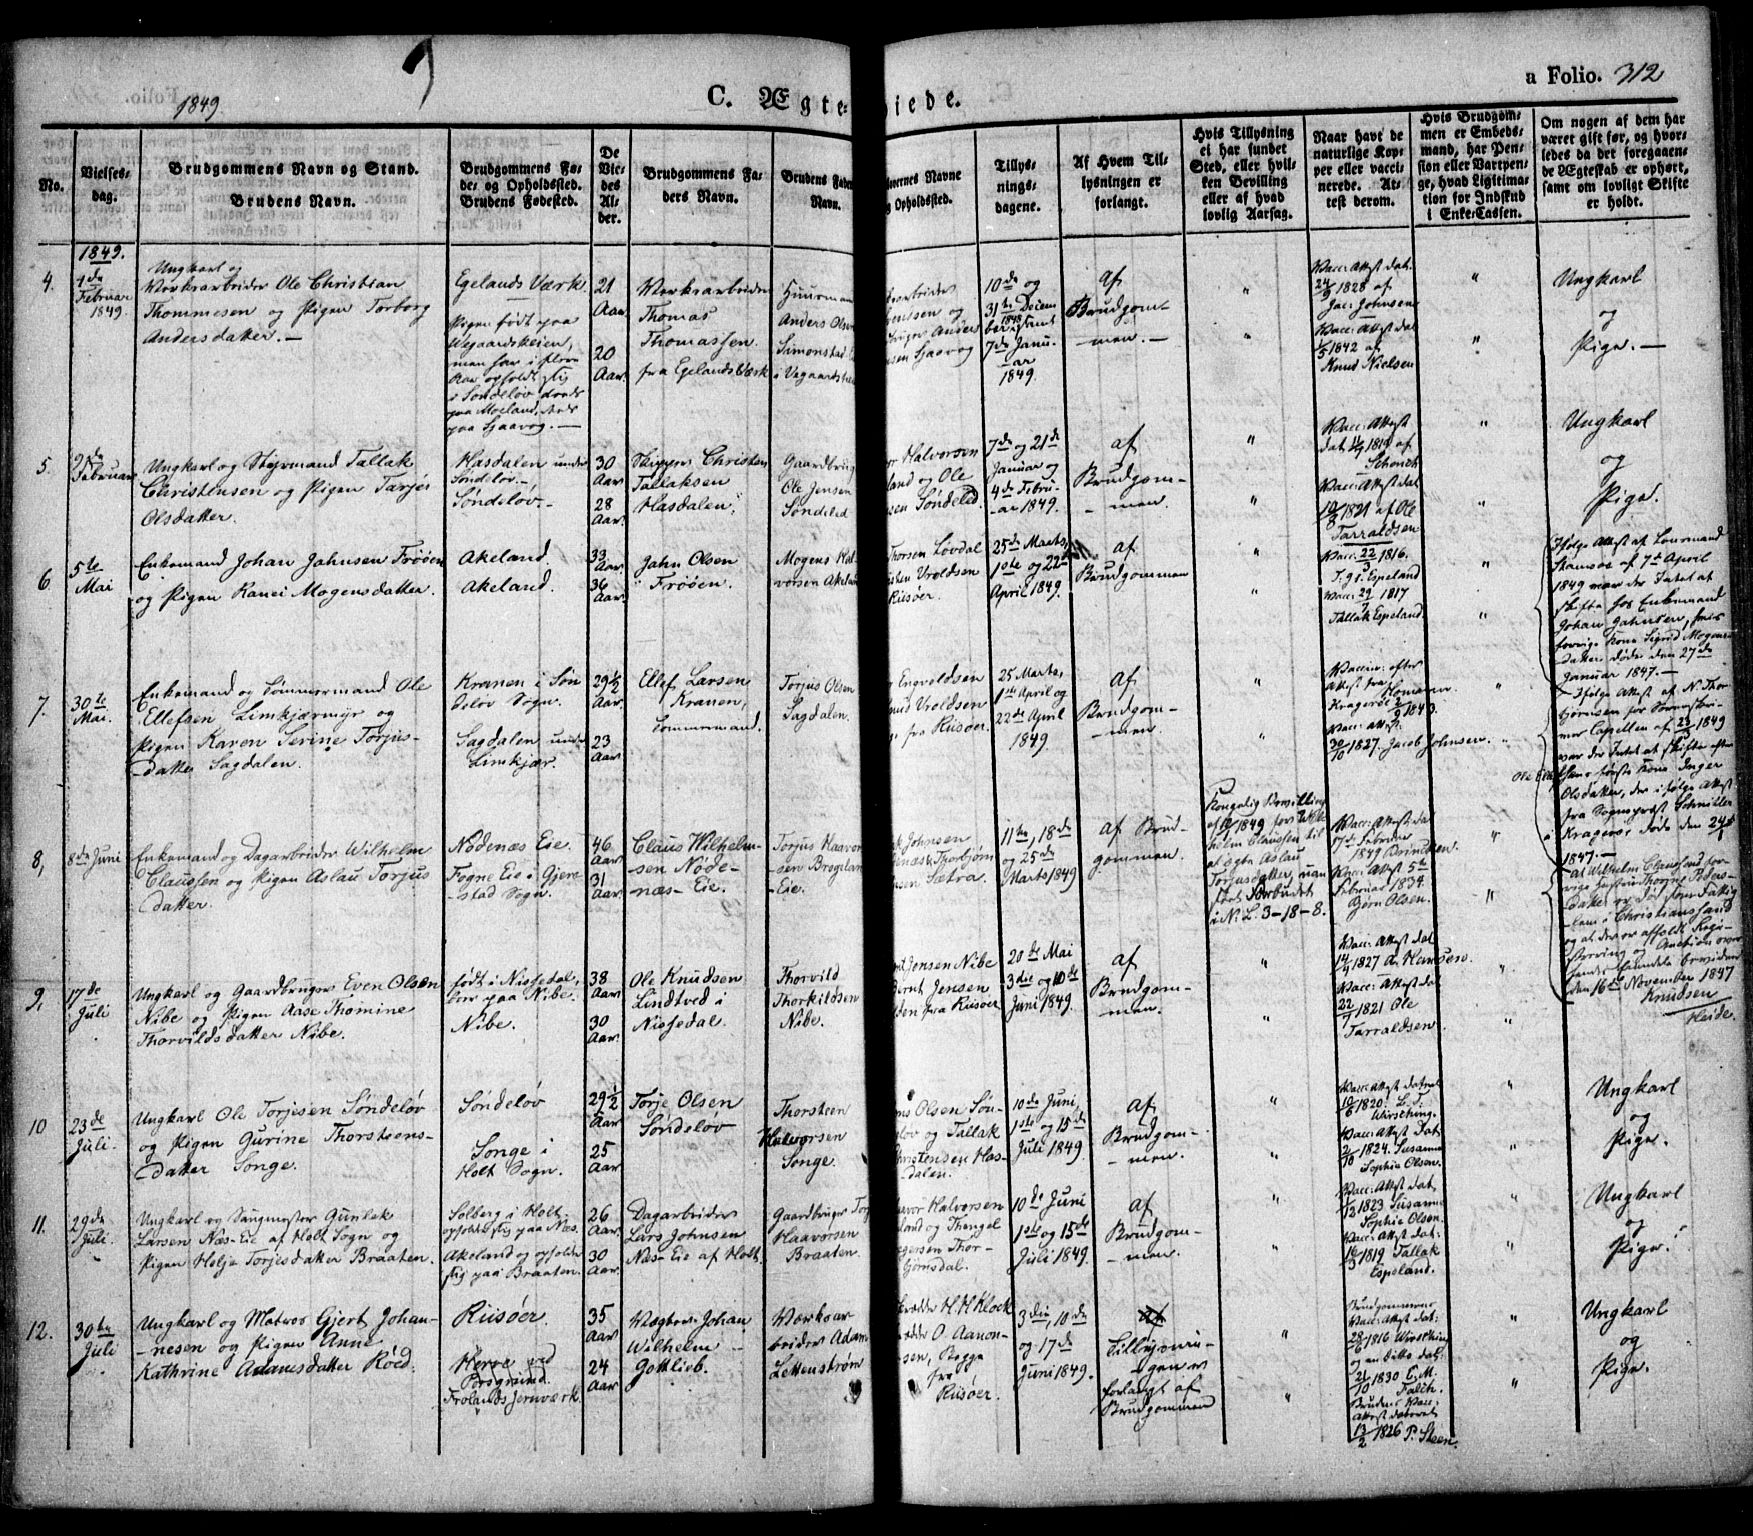 1849
C. Ægte-
viede.
a Folio. 312
No.
Vielses-
dag.
Brudgommens Navn og Stand.
Brudens Navn.
Brudgommens Fø-
de- og Opholdssted.
Brudens Fødested.
De
Vie-
des
Al-
der.
Brudgommens Fa-
ders Navn.
Brudens Faders
Navn.
Forlovernes Navne
og Opholdssted.
Tillys-
nings-
dagene.
Af Hvem Til-
lysningen er
forlangt.
Hvis Tillysning
ei har fundet
Sted, eller hvil-
ken Bevilling
eller af hvad
lovlig Aarsag.
Naar havt de
naturlige Kop-
per eller vacci-
nerede. At-
test derom.
Hvis Brudgom-
men er Embeds-
mand, har Pen-
sion eller Vartpen-
ge, hvad Legitima-
tion for Indskud
i Enke-Cassen.
Om nogen af dem har
været gift før, og hvor-
ledes da det foregaaen-
de Ægteskab er ophørt,
samt om lovligt Skifte
er holdt.
1849.
4.
1de
Februar
1849.
Ungkarl og
Værksarbeider Ole Christian
Thommesen og Pigen Torborg
Andersdatter. —
Egelands Værk.
Pigen født paa
Wegaardskeien,
men har i flere
Aar opholdt sig
i Søndeløv
21
Aar
20
Aar.
Værksarbeider
Thomas
Thomassen.
fra Egelands Værk
Huusmand
Anders Olsen
Simonstad
i Vegaardsheien
10de og
31te Decem-
ber 1848 samt
7de Janu-
ar
1849.
af
Brudgom-
men.
Vacc: Attest dat.
24/9 1828 af
Jac: Johnsen
Vacc: Attest dat
1/5 1842 af
Knud Nielsen
Ungkarl
og
Pige. —
5.
Februar
Ungkarl og Styrmand Tallak
Christensen og Pigen Tarjer
Olsdatter.
Hasdalen under
Søndeløv. —
Søndeløv. —
30
Aar
28
Aar.
Skipper Christen
Tallaksen
Hasdalen.
Gaardbruger
Ole Jensen
Søndeled
Halvorsen
land og Ole
sen Søndeled.
7de og 21de
Januar og
4de Febru-
ar 1849.
af
Brudgom-
- men.
Vacc: Attest
1819 af
Schonck
Vacc: Attest dat
10/8 1821 af Ole
Tarraldsen
Ungkarl
og
Pige.
6
5te
Mai
Enkemand Johan Jahnsen Frøöen
og Pigen Ranei Mogensdatter.
Akeland.
Akeland.
33
Aar.
36
Aar.
Jahn Olsen
i Frøöen.
Mogens Hal-
vorsen Akeland
Thorsen Løvdal
Uroldsen
Riisøer.
25de Marts,
1ste og 22de
April 1849.
af
Brudgommen
Vacc: 22/3 1816.
T. g. s. Espeland
Vacc: 29/7 1817
Tallak Espeland.
Ifølge Attest af Lensmand
Stamsøe af 7de April
1849 var der Intet at
skifte hos Enkemand
Johan Jahnsen, hvis
forrige Kone Sigrid Mogens-
datter døde den 27de
Januar 1847. —
7.
30te
Mai.
Enkemand og Tømmermand Ole
Ellefsen Limkjærmyr og
Pigen Karen Serine Torjus-
datter Sagdalen.
Kranen i Søn
deløv Sogn.
Sagdalen under
Limkjær.
29½
Aar.
23
Aar.
Ellef Larsen
Kranen,
Tømmermand.
Torjus Olsen
Sagdalen.
Engvoldsen
Uroldsen
fra Riisøer.
25 Marts,
1ste April og
22de April
1849
af
Brudgom-
- men.
Vaccin: efter
Attest fra
Kragerøe Homann
1843.
Vacc: Attest
30/10 1827. Jacob Johnsen.
Ifølge Attest af N. Thor
bjørnsen for Sørensbri-
mer Capellen af 23/3 1849
var der Intet at skifte efter
Ole Ellefsens første Kone Inger
Olsdatter, der ifølge Attest
fra Sognepræst Schnitler
i Kragerøe døde den 24/5
1847. —
8,
8de Juni
Enkemand og Dagarbeider Wilhelm
Claussen og Pigen Aslau Torjus
datter.
Nødenæs Eie.
Fogne Eie i Gjer-
stad Sogn.
46
Aar
31
Aar.
Claus Wilhelm-
sen Nøde-
næs-Eie.
Torjus Haavor-
sen Bregland-
Eie.
Johnsen
næs Thorbjørn
sen Sætra.
11te, 18de
og 25de
Marts 1849
af Brud-
gommen.
Kongelig Bevilling
1849 for Wil-
helm Claussen til
at egte Aslau
Torjusdatter, uan-
ført Forbudet
i N: L. 3-18-8.
Vacc: Attest dat
17de Februar
1849 Brincken
Vacc: Attest 5te
Februar 1834.
Bjørn Olsen.
at Wilhelm Claussens for-
rige Hustru Thorine Peders-
datter er død som Fattig-
lem i Christianssand
og at der er afholdt Regi-
strering og Auction over
hendes Efterladte bevidner
den 16de November 1847
Knudsen
Heide.
9.
17de
Juli
Ungkarl og Gaardbruger Even Olsen
Nibe og Pigen Aase Thomine
Thorvildsdatter Nibe.
født i Nissedal,
bor paa Nibe.
Nibe.
38
Aar
30
Aar.
Ole Knudsen
Lindtved i
Nissedal.
Thorvild
Thorkildsen
Nibe.
Jensen Nibe
Bernt Jensen
fra Riisøer
20de Mai
3die og 10de
Juni 1849.
af
Brudgom-
men.
Vacc: Attest dat
1827 A. Hansen.
Vacc: Attest dat
22/7 1821 Ole
Tarraldsen.
10
23de
Juli.
Ungkarl Ole Torjesen Søndeløv
og Pigen Gurine Thorsteens-
datter Songe.
Søndeløv
Songe i
Holt Sogn.
29½
Aar
25
Aar.
Torje Olsen
Søndeløv
Thorsteen
Halvorsen
Songe.
Olsen Søn-
løv og Tallak
Christensen Has-
dalen.
10de Juni,
1ste og 15de
Juli 1849.
af
Brudgom-
- men.
Vacc: Attest dateret
10/6 1820: L. T.
Wirsching.
Vacc: Attest Dat
2/10 1824. Susanna
Sophie Olsen.
Ungkarl
og
Pige.
11.
29de
Juli.
Ungkarl og Sangmester Gunlek
Larsen Næs-Eie af Holt Sogn og
Pigen Helje Torjesdatter Braaten.
Solberg i Holt.
opholdt sig paa Næs.
Akeland og opholdt
sig paa Braaten.
26
Aar.
30
Aar.
Dagarbeider
Lars Johnsen
Næs-Eie af Holt.
Gaardbruger
Haavorsen
Braaten.
Halvorsen
land og Thengel
Thor-
bjørnsdal.
10de Juni
1ste og 15de
Juli 1849.
af
Brudgom-
- men.
Vacc: Attest dat.
1823 Susanna
Sophie Olsen.
Vacc: Attest dat:
16/3 1819 Tallak
Espeland.
Ungkarl
og
Pige.
12.
30te
Juli
Ungkarl og Matros Gjert Johan-
nesen og Pigen Anne
Kathrine Adamsdatter Røed.
Riisøer.
Herre ved
Porsgrund.
Frolands Jernværk.
35
Aar
24
Aar.
Vægter Johan
Wilhelm
Gottlieb.
Værksar
beider Adam
Lettenstrøm
Skrædder H. H Klock
O. Aanon-
sen, Begge
fra
Riisøer.
3die, 10de
og 17de
Juni 1849.
Tillysnin-
gen er
forlangt af
Brudgommen
Brudgommens
Vacc: Attest dat:
28/6 1816 Wirsching
og en Ditto dat:
21/10 1830 C. M.
Falch.
Brudens Vacc:
Attest dateret
13/2 1826 P. Steen.
Ungkarl
og
Pige.